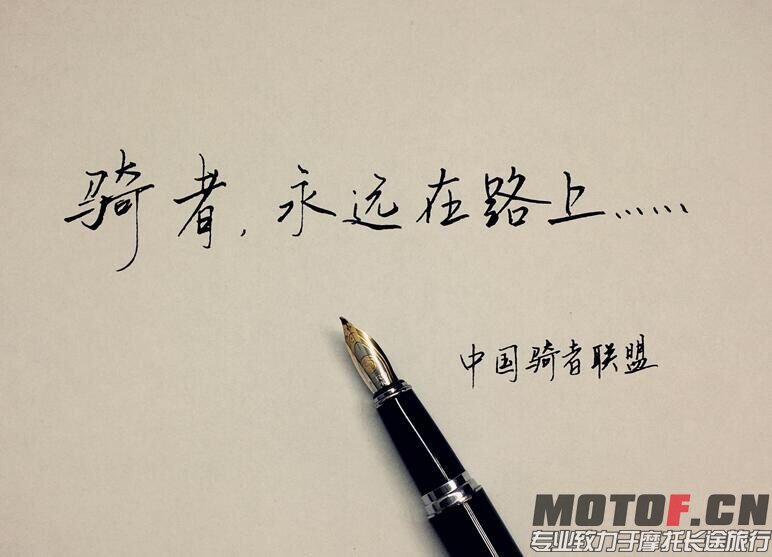 骑者,永远在路上......
中国骑者联盟
MOTOF.CN
专业致力于摩托长途旅行